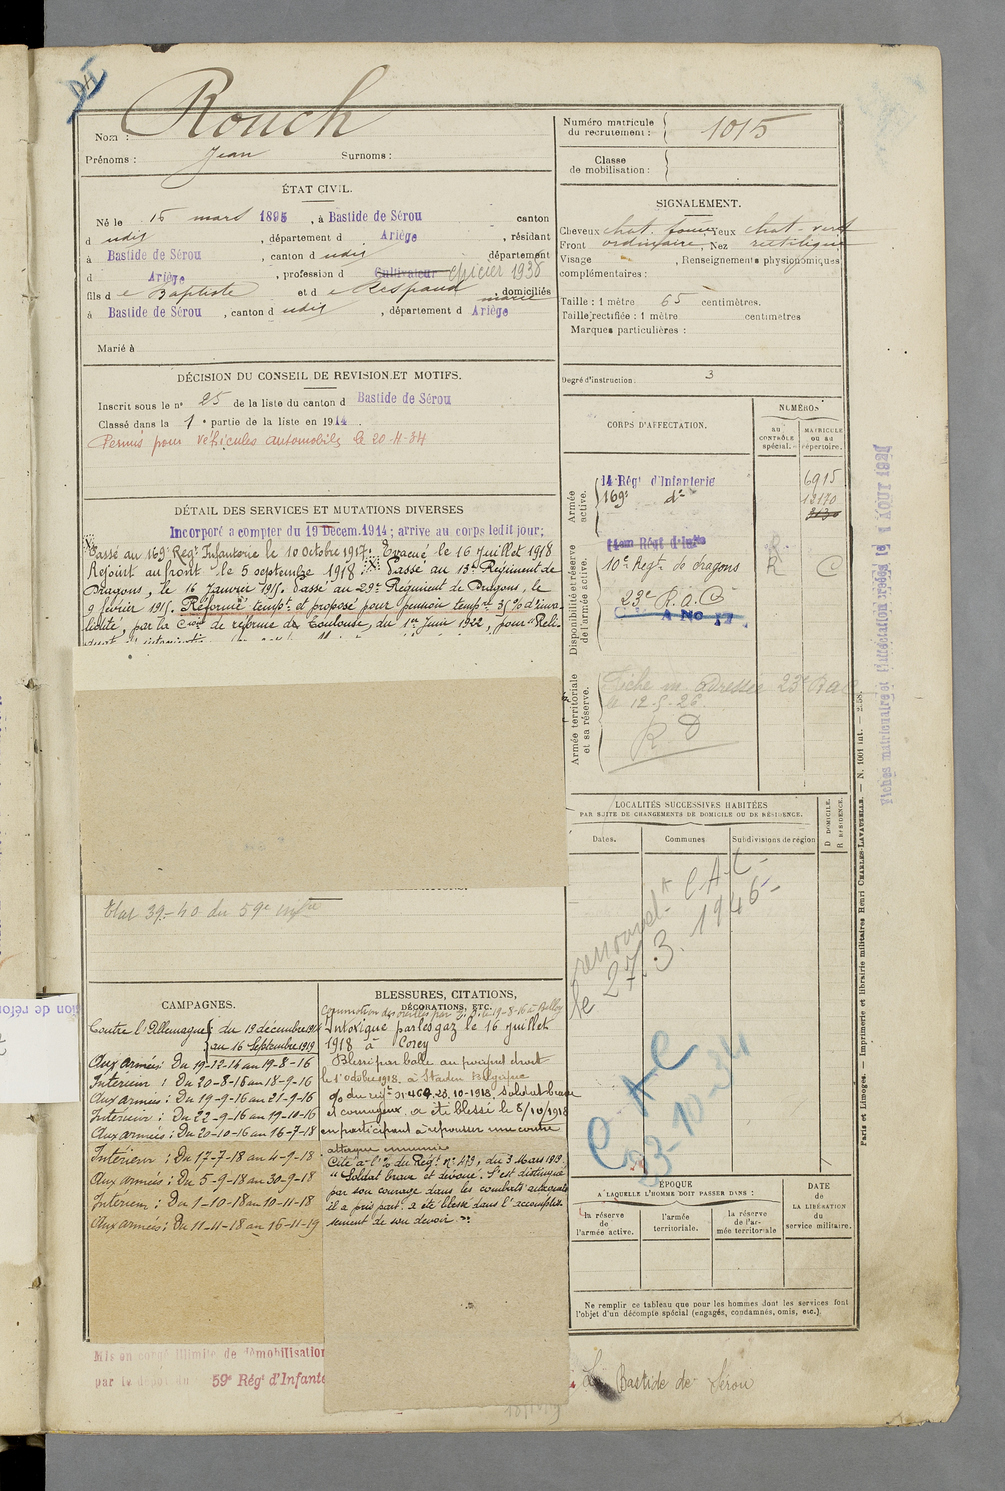 Rouch
Nom :
Prénoms : Jean Surnoms :
ÉTAT CIVIL.
Né le 15 mars 1895, à Bastide de Sérou canton
d udit, département d Ariège, résidant
à Bastide de Sérou, canton d udit département
d Ariège, profession d Cultivateur épicier 1938
fils de Baptiste et de Respaud, domiciliés
marié
à Bastide de Sérou, canton d udit, département d Ariège
Marié à
DÉCISION DU CONSEIL DE REVISION ET MOTIFS.
Inscrit sous le n° 25 de la liste du canton d Bastide de Sérou
Classé dans la 1e partie de la liste en 1914.
Permis pour véhicules automobiles le 20-11-34
DÉTAIL DES SERVICES ET MUTATIONS DIVERSES
Incorporé a compter du 19 Decem. 1914; arrive au corps ledit jour;
Passé au 169e Régt Infanterie le 10 octobre 1917. Evacué le 16 Juillet 1918
Rejoint au front le 5 septembre 1918. Passé au 13e Régiment de
Dragons, le 16 Janvier 191. Passé au 29e Régiment de Dragons, le
9 février 191. Réformé tempre et proposé pour pension tempre 35% d'inva-
lidité, par la Cion de réforme de Toulouse, du 1er Juin 1922, pour "Reli-
Etat 39-40 du 59e infie
CAMPAGNES.
Contre l'Allemagne { du 19 décembre 1914
au 16 Septembre 1919
Aux armées: Du 19-12-14 au 19-8-16
Intérieur : Du 20-8-16 au 18-9-16
Aux armées : Du 19-9-16 au 21-9-16
Intérieur : Du 22-9-16 au 19-10-16
Aux armées : Du 20-10-16 au 16-7-18
Intérieur : Du 17-7-18 au 4-9-18
Aux armées : Du 5-9-18 au 30-9-18
Intérieur : Du 1-10-18 au 10-11-18
Aux armées : Du 11-11-18 au 16-11-19
Mis en congé illimité de démobilisation
par le dépôt du 59e Régt d'Infante
BLESSURES, CITATIONS,
DÉCORATIONS, ETC.
Commotion des oreilles par le 19-8-16 à Belloy
Intoxiqué par les gaz le 16 Juillet
1918 à Corcy
Blessé par balle au poignet droit
le 1er octobre 1918. à Staden Belgique
O/ du régt n° 464. 28.10-1918. Soldat brave
et courageux. a été blessé le 8/10/1918
en participant à repousser une contre
attaque ennemie
Cité à l'O/ du Régt n° 473, du 3 Mars 1919
"Soldat brave et dévoué. S'est distingué
par son courage dans les combats auxquels
il a pris part. a été blessé dans l'accomplis-
sement de son devoir."
Numéro matricule
du recrutement : 1015
Classe
de mobilisation :
SIGNALEMENT.
Cheveux chat. foncé, Yeux chat-vert
Front ordinaire, Nez rectiligne
Visage , Renseignements physionomiques
complémentaires :
Taille : 1 mètre 65 centimètres.
Taille rectifiée : 1 mètre centimètres
Marques particulières :
Degré d'instruction : 3
CORPS D'AFFECTATION.
NUMÉROS
AU CONTRÔLE spécial.
MATRICULE ou au répertoire.
Armée active.
14 Régt d'Infanterie 6915
169e do 12170
Disponibilité et réserve de l'armée active.
14em Régt d'Infie R
10e Regt de dragons R C
23e R.A.C
A No 17
Armée territoriale et sa réserve.
Fiche m. adressée 23e RAC
le 12-5-26
R D
Fiches matriculaire et d'affectation créées le 1 AOUT 192
LOCALITÉS SUCCESSIVES HABITÉES
PAR SUITE DE CHANGEMENTS DE DOMICILE OU DE RÉSIDENCE.
Dates. Communes Subdivisions de région
D DOMICILE.
R RÉSIDENCE.
C.A.C
le 27.3.1946
C.A.C
23-10-34
ÉPOQUE
A LAQUELLE L'HOMME DOIT PASSER DANS :
la réserve de l'armée active.
l'armée territoriale.
la réserve de l'armée territoriale
DATE
de
LA LIBÉRATION
du
service militaire.
Ne remplir ce tableau que pour les hommes dont les services font
l'objet d'un décompte spécial (engagés, condamnés, omis, etc.).
La Bastide de Sérou
Paris et Limoges. — Imprimerie et librairie militaires Henri CHARLES-LAVAUZELLE. — N. 1001 int. —